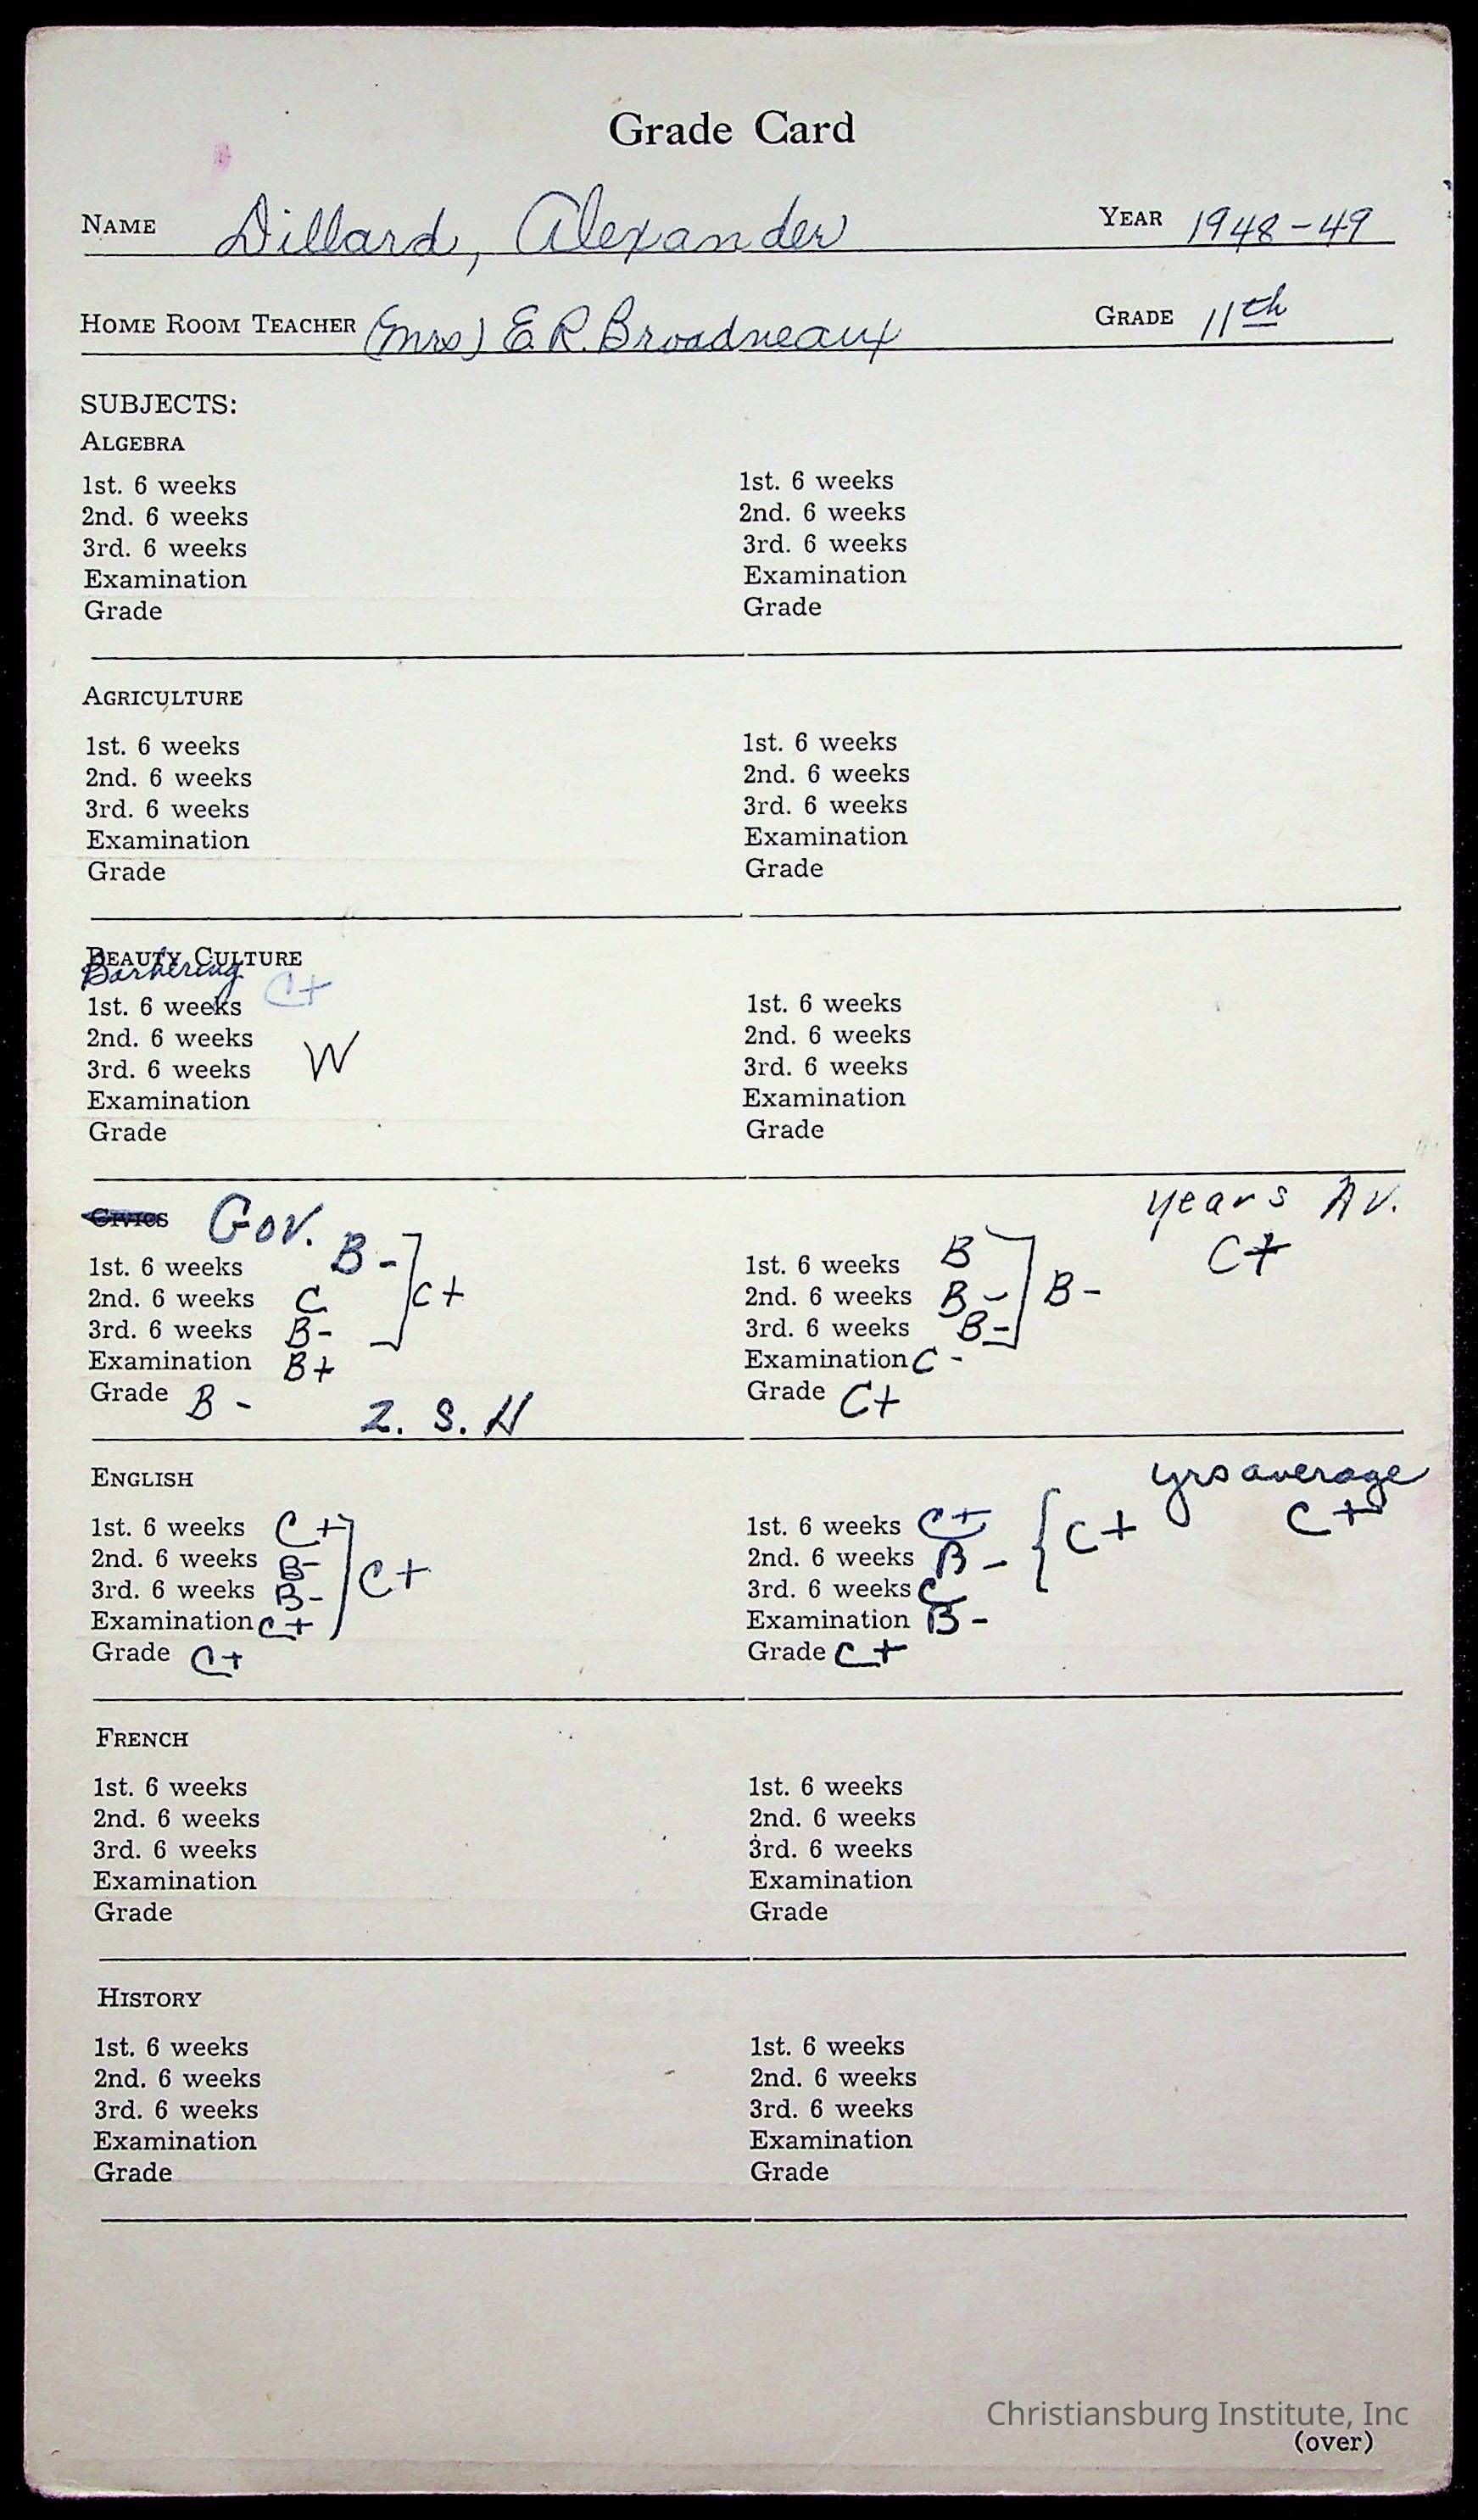 Grade Card
NAME Dillard, Alexander YEAR 1948-49
HOME ROOM TEACHER (Mrs) E.R. Broadneaux GRADE 11th
SUBJECTS:
ALGEBRA
1st. 6 weeks 1st. 6 weeks
2nd. 6 weeks 2nd. 6 weeks
3rd. 6 weeks 3rd. 6 weeks
Examination Examination
Grade Grade
AGRICULTURE
1st. 6 weeks 1st. 6 weeks
2nd. 6 weeks 2nd. 6 weeks
3rd. 6 weeks 3rd. 6 weeks
Examination Examination
Grade Grade
BEAUTY CULTURE
Barbering
1st. 6 weeks C+ 1st. 6 weeks
2nd. 6 weeks 2nd. 6 weeks
3rd. 6 weeks W 3rd. 6 weeks
Examination Examination
Grade Grade
CIVICS Gov. years Av.
1st. 6 weeks B- 1st. 6 weeks B C+
2nd. 6 weeks C C+ 2nd. 6 weeks B- B-
3rd. 6 weeks B- 3rd. 6 weeks B-
Examination B+ Examination C-
Grade B- Z. S. H Grade C+
ENGLISH yrs average
1st. 6 weeks C+ 1st. 6 weeks C+ C+ C+
2nd. 6 weeks B- C+ 2nd. 6 weeks B-
3rd. 6 weeks B- 3rd. 6 weeks C
Examination C+ Examination B-
Grade C+ Grade C+
FRENCH
1st. 6 weeks 1st. 6 weeks
2nd. 6 weeks 2nd. 6 weeks
3rd. 6 weeks 3rd. 6 weeks
Examination Examination
Grade Grade
HISTORY
1st. 6 weeks 1st. 6 weeks
2nd. 6 weeks 2nd. 6 weeks
3rd. 6 weeks 3rd. 6 weeks
Examination Examination
Grade Grade
Christiansburg Institute, Inc
(over)